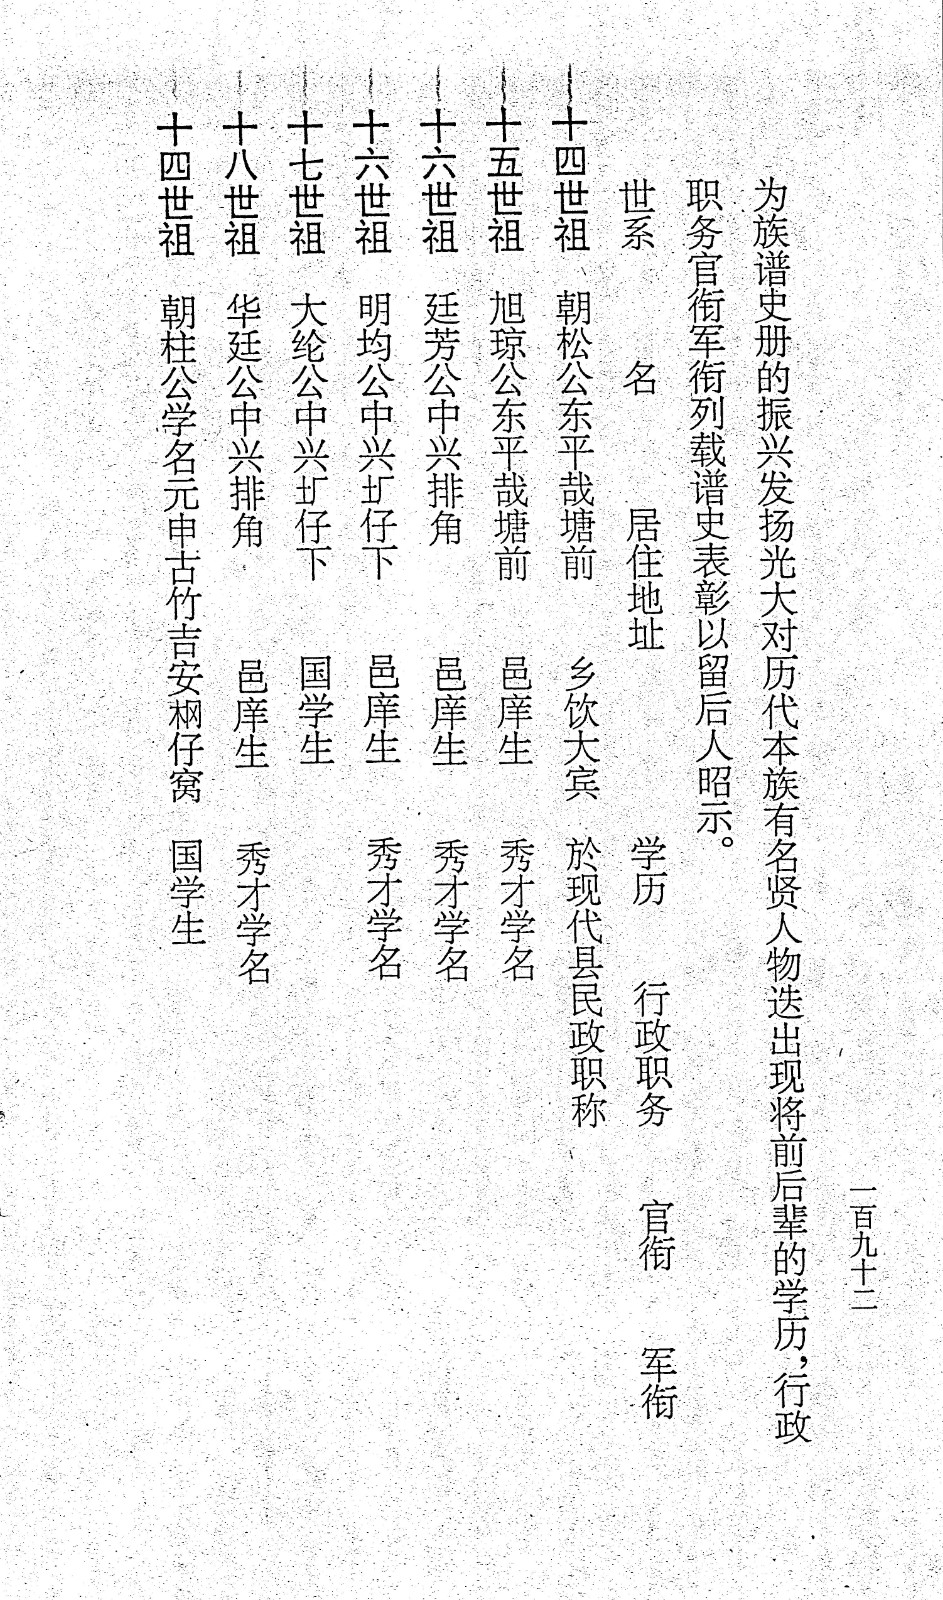 一百九十二
为族谱史册的振兴发扬光大对历代本族有名贤人物迭出现将前后辈的学历，行政
职务官衔军衔列载谱史表彰以留后人昭示。
世系 名 居住地址 学历 行政职务 官衔 军衔
十四世祖 朝松公东平哉塘前 乡饮大宾 於现代县民政职称
十五世祖 旭琼公东平哉塘前 邑庠生 秀才学名
十六世祖 廷芳公中兴排角 邑庠生 秀才学名
十六世祖 明均公中兴圹仔下 邑庠生 秀才学名
十七世祖 大纶公中兴圹仔下 国学生
十八世祖 华廷公中兴排角 邑庠生 秀才学名
十四世祖 朝柱公学名元申古竹吉安棢仔窝 国学生